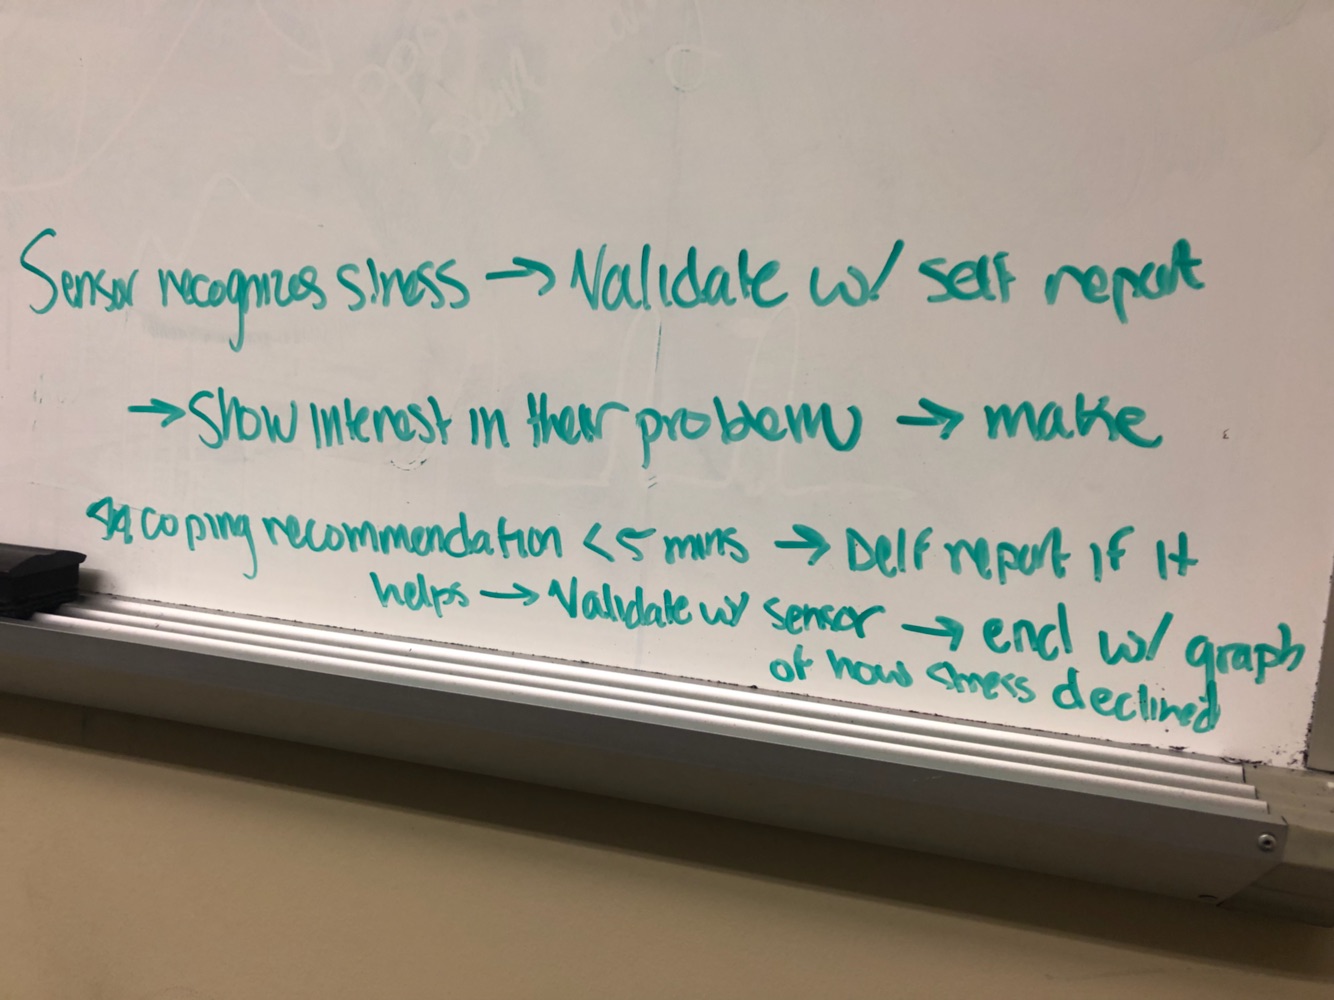 Sensor recognizes stress → Validate w/ self report
→ Show interest in their problem → make
coping recommendation < 5 mins → Self report if it
helps → Validate w/ sensor → end w/ graph
of how stress declined